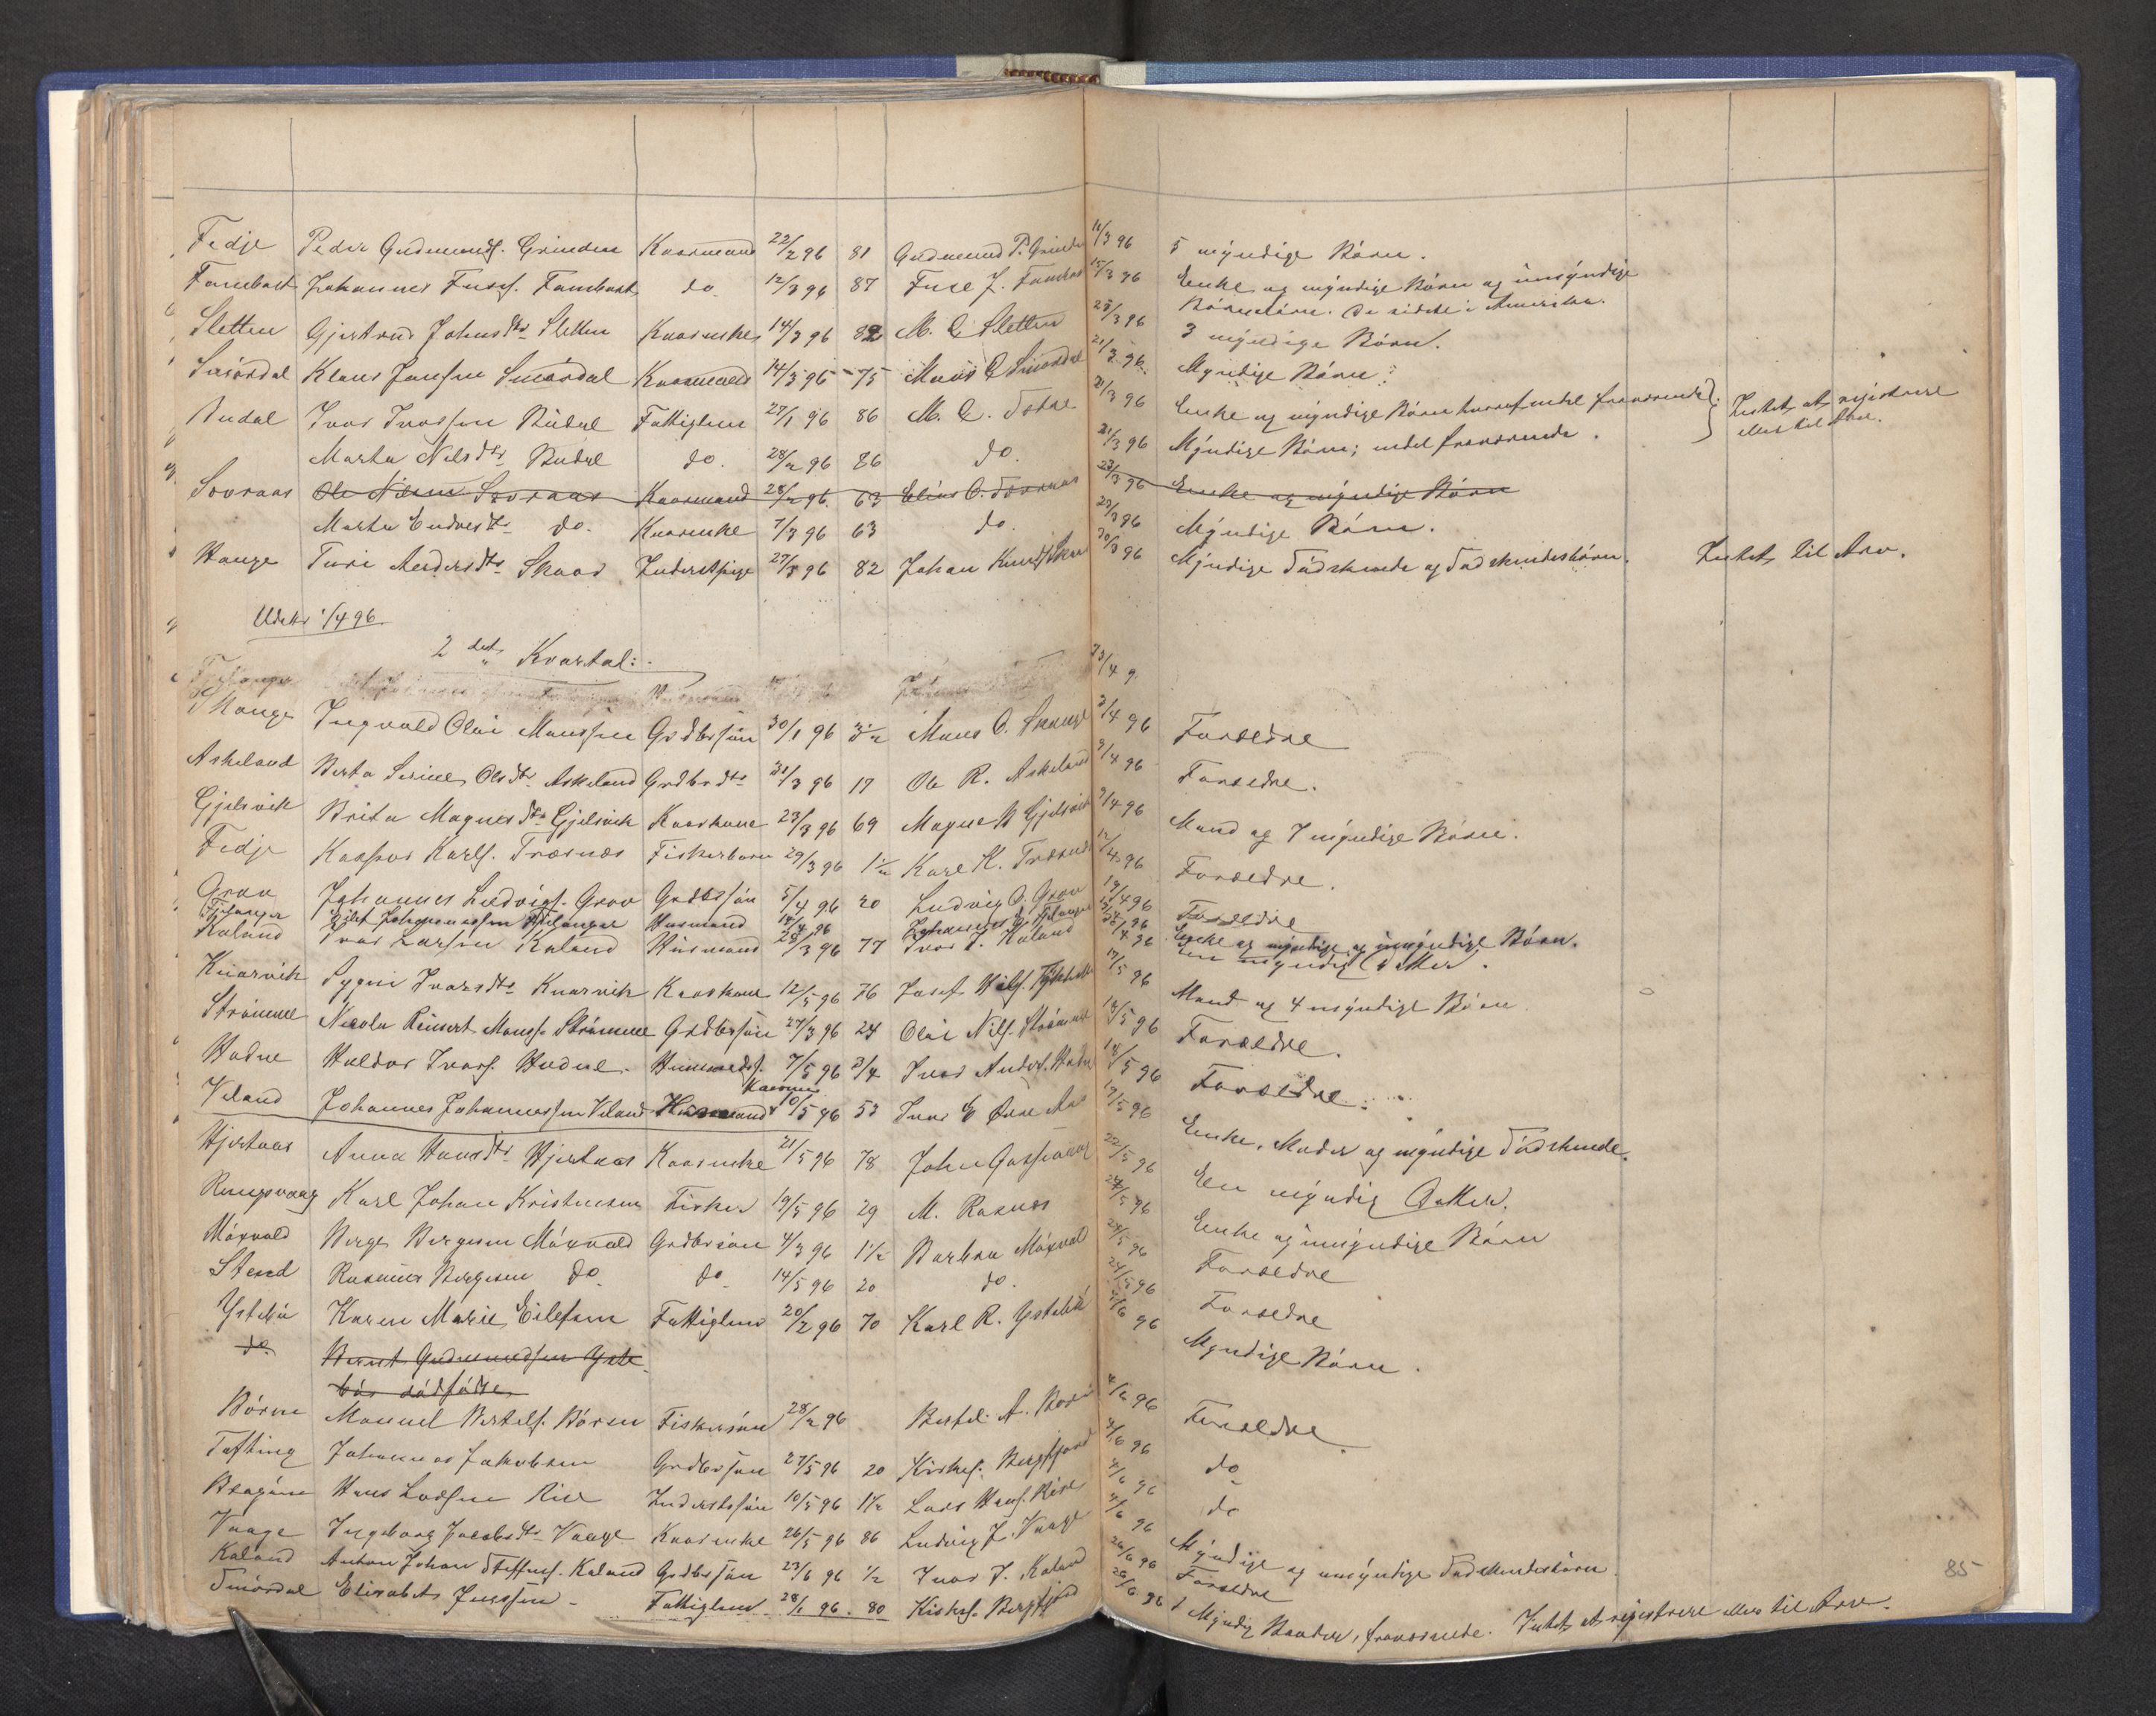 Fedje Peder Gudmunds. Grinden Kaarmand 22/2 96 81 Gudmund P. Grinde 11/3 96 5 myndige Börn.
Johannes do. 12/3 96 87 15/3 96 Enke og myndige Börn og umyndige
Börnebörn. De sidste i Amerika.
Sletten Gjertrud Johnsdtr. Sletten Kaarenke 14/3 96 82 M. O. Sletten 3 myndige Börn.
Smördal Klaus Jansen Smördal Kaarmand 14/3 96 75 Mons O. Smördal 21/3 96 Myndige Börn.
Budal Ivar Ivarsen Budal Fattiglem 27/1 96 86 M. O. 21/3 96 Enke og myndige Börn hvoraf endel fraværende. Intet at registrere
eller til Arv.
Marta Nilsdtr. Budal do. 28/2 96 86 do. 21/3 96 Myndige Börn; endel fraværende.
Sovraas Ole Nilsen Sovraas Kaarmand 28/2 96 63 Elias O. 23/3 96 Enke og myndige Börn
Marta do. Kaarenke 7/3 96 63 do. 23/3 96 Myndige Börn.
Hauge Turi Andersdtr. Skaar Inderstpige 82 Johan Knuds. Skaar 30/3 96 Myndige Södskende og Södskendebörn. Intet til Arv.
1/4 96.
2det Kvartal:
Skauge Ingvald Olai Monssen Grdbrsön 30/1 96 Mons O. Skauge 3/4 96 Forældre
Askeland Berta Serine Olsdtr. Askeland Grdbrdtr. 31/3 96 17 Ole R. Askeland 9/4 96 Forældre.
Gjelsvik Brita Magnesdtr. Gjelsvik Kaarkone 23/3 96 69 Magne Gjelsvik 9/4 96 Mand og 7 myndige Börn.
Fedje Kaspar Karls. Træsnæs Fiskerbarn 29/3 96 1½ Karl K. Træsnæs 12/4 96 Forældre.
Grov Johannes Ludvigs. Grov Grdbrsön 5/4 96 20 Ludvig O. Grov 19/4 96 Forældre
Johannessen Husmand Johannes Enke og myndige og umyndige Börn.
Kaland Ivar Larsen Kaland Husmand 28/3 96 77 Ivar J. Kaland En myndig Datter.
Knarvik Sygni Ivarsdtr. Knarvik Kaarkone 12/5 96 76 Josef 17/5 96 Mand og 4 myndige Börn
Strömme Nicolai Reinert Monss. Strömme Grdbrsön 27/3 96 24 Olai Nils. Strömme 18/5 96 Forældre.
Hodne Haldor Ivars. Hodne Husmandss. 7/5 96 3/4 Ivar Anders. Hodne 18/5 96 Forældre.
Veland Johannes Johannessen Veland Husmand Kaarm. 10/5 96 53 Ivar 19/5 96 Enke, Moder og myndige Södskende.
Hjertaas Anna Hansdtr. Hjertaas Kaarenke 21/5 96 78 John 22/5 96 En myndig Datter.
Rongevaag Karl Johan Kristensen Fisker 19/5 96 29 M. Rasnæs 24/5 96 Enke og umyndige Börn
Möxvold Börge Börgesen Möxvold Grdbrsön 4/3 96 1½ Möxvold 24/5 96 Forældre
Stend Rasmus Börgesen do. do. 14/5 96 20 do. 24/5 96 Forældre
Ystebö Karen Marie Eilefsen Fattiglem 20/2 96 70 Karl R. Ystebö 96 Myndige Börn.
do. Bernt Gudmundsen Yste-
bö dödfödt
Börn Monuel Bertels. Bören Fiskersön 28/2 96 Bertel A. Bören 4/6 96 Forældre.
Tofting Johannes Jakobsen Grdbrsön 27/5 96 20 Kirkes. Bergfjord 4/6 96 do.
Hans Larsen Rise Inderstsön 10/5 96 1½ Lars Hans. Rise 4/6 96 do
Vaage Ingeborg Jacobsdtr. Vaage Kaarenke 26/5 96 86 Ludvig J. Vaage 4/6 96 Myndige og umyndige Södskendebörn
Kaland Anton Johan Steffens. Kaland Grdbrsön 23/6 96 ½ Ivar J. Kaland 26/6 96 Forældre
Smördal Elisabet Jenssen Fattiglem 96 80 Kirkes. Bergfjord 26/6 96 1 Myndig Broder, fraværende. Intet at registrere eller til Arv.
85